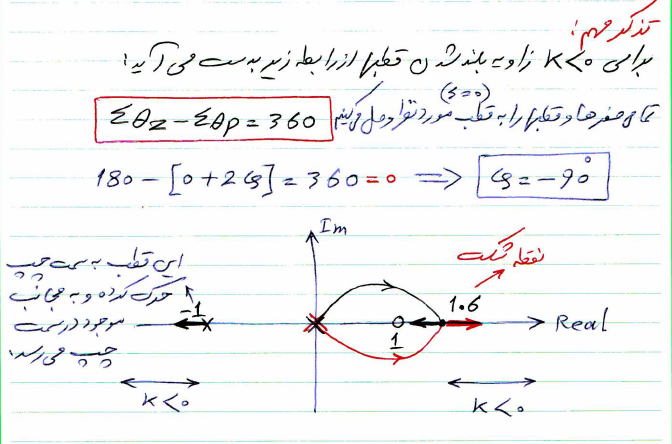 تذکر مهم:
برای k<0 زاویه بلند شدن قطبها از رابطه زیر بدست می آید:
(s=0)
تمامی صفرها و قطبها را به قطب مورد نظر وصل می‌کنیم
Σθz - Σθp = 360
180 - [0 + 2φ] = 360 = 0 ⟹ φ = -90°
Im
نقطه شکست
این قطب به سمت چپ
حرکت کرده و به مجانب
موجود در سمت
چپ می رسد:
-1
1
1.6
Real
k<0
k<0